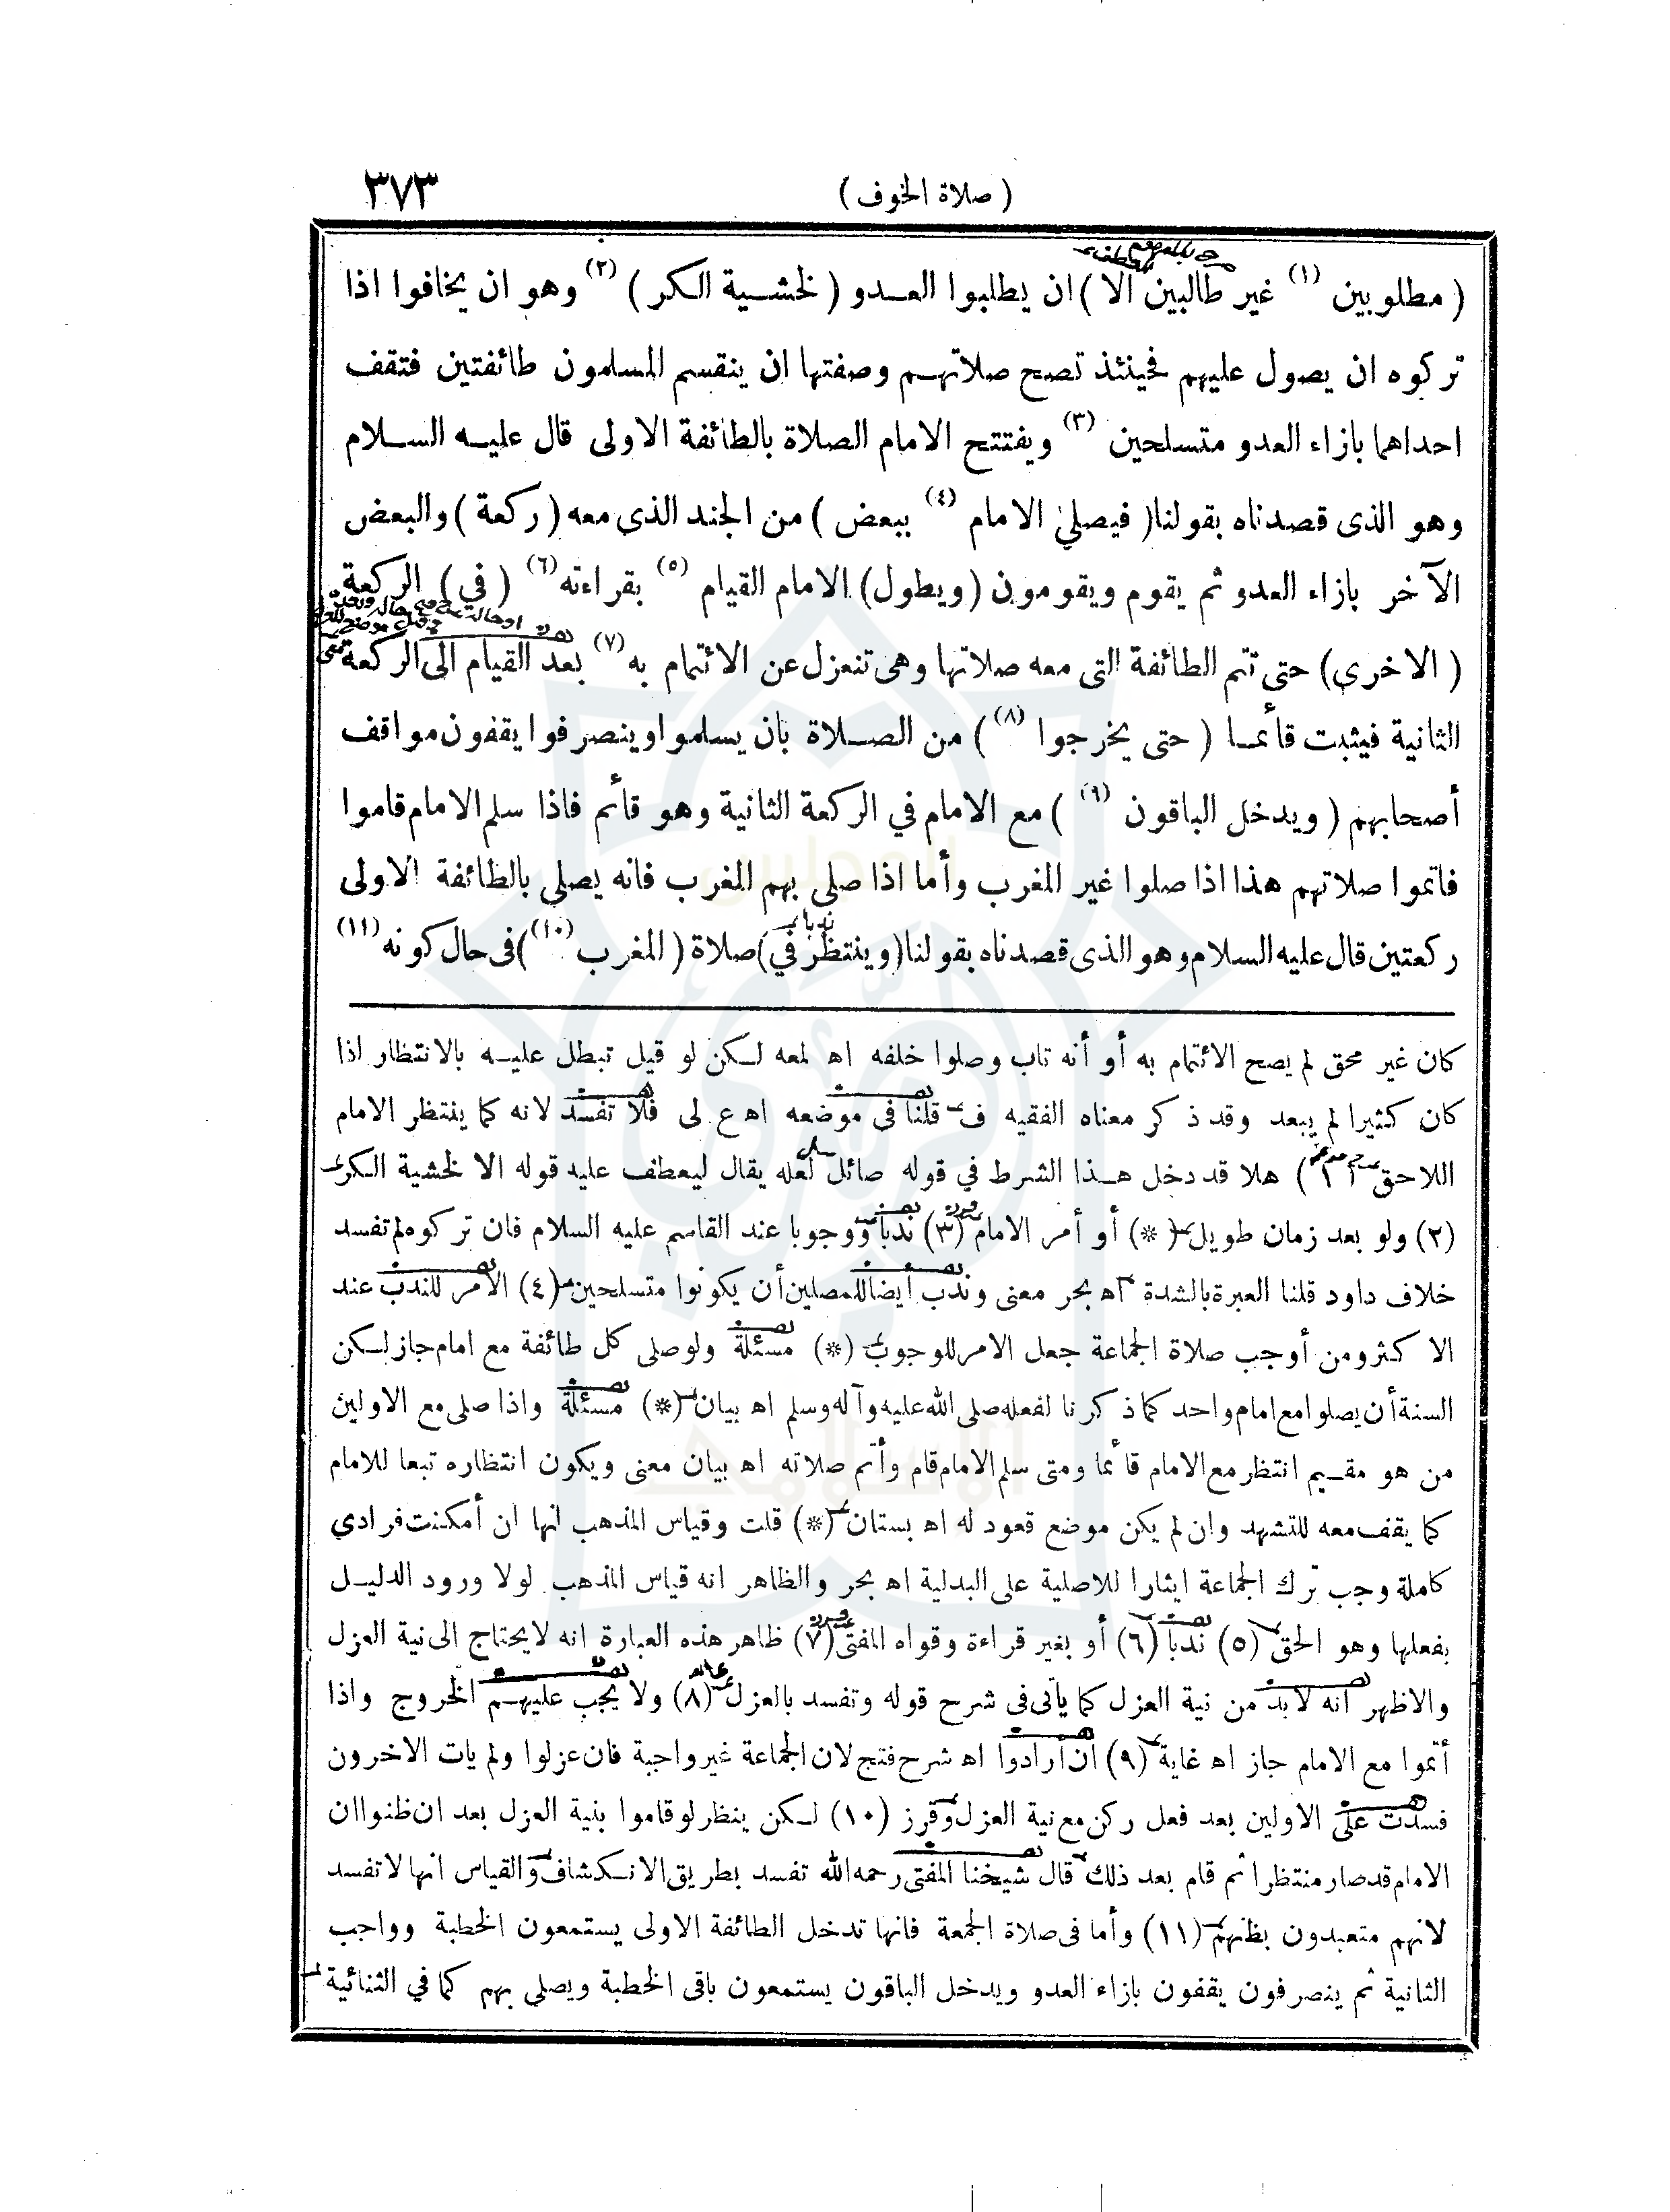 ٣٧٣
( صلاة الخوف )
( مطلوبين (١) غير طالبين الا ) ان يطلبوا العدو ( لخشية الكر ) (٢) وهو ان يخافوا اذا
تركوه ان يصول عليهم فحينئذ تصح صلاتهم وصفتها ان ينقسم المسلمون طائفتين فتقف
احداهما بازاء العدو متسلحين (٣) ويفتتح الامام الصلاة بالطائفة الاولى قال عليه السلام
وهو الذى قصدناه بقولنا ( فيصلي الامام (٤) ببعض ) من الجند الذى معه ( ركعة ) والبعض
الآخر بازاء العدو ثم يقوم ويقومون ( ويطول ) الامام القيام (٥) بقراءته (٦) ( في ) الركعة
( الاخرى ) حتى تتم الطائفة التى معه صلاتها وهى تنعزل عن الائتمام به (٧) بعد القيام الى الركعة
الثانية فيثبت قائما ( حتى يخرجوا (٨) ) من الصلاة بان يسلموا وينصرفوا يقفون مواقف
أصحابهم ( ويدخل الباقون (٩) ) مع الامام في الركعة الثانية وهو قائم فاذا سلم الامام قاموا
فاتموا صلاتهم هذا اذا صلوا غير المغرب وأما اذا صلى بهم المغرب فانه يصلي بالطائفة الاولى
ندبا
ركعتين قال عليه السلام وهو الذى قصدناه بقولنا ( وينتظر في ) صلاة ( المغرب (١٠) ) فى حال كونه (١١)
كان غير محق لم يصح الائتمام به أو أنه تاب وصلوا خلفه اه لمعه لكن لو قيل تبطل عليه بالانتظار اذا
كان كثيرا لم يبعد وقد ذكر معناه الفقيه ف قلنا فى موضعه اه ع لى فلا تفسد لانه كما ينتظر الامام
اللاحق (١) هلا قد دخل هذا الشرط في قوله صائل لعله يقال ليعطف عليه قوله الا لخشية الكر
(٢) ولو بعد زمان طويل (*) أو أمر الامام (٣) ندبا ووجوبا عند القاسم عليه السلام فان تركوه لم تفسد
خلاف داود قلنا العبرة بالشدة اه بحر معنى وندب أيضا للمصلين أن يكونوا متسلحين (٤) الأمر للندب عند
الاكثر ومن أوجب صلاة الجماعة جعل الامر للوجوب (*) مسئلة ولو صلى كل طائفة مع امام جاز لكن
السنة أن يصلوا مع امام واحد كما ذكرنا لفعله صلى الله عليه وآله وسلم اه بيان (*) مسئلة واذا صلى مع الاولين
من هو مقيم انتظر مع الامام قائما ومتى سلم الامام قام وأتم صلاته اه بيان معنى ويكون انتظاره تبعا للامام
كما يقف معه للتشهد وان لم يكن موضع قعود له اه بستان (*) قلت وقياس المذهب انها ان أمكنت فرادى
كاملة وجب ترك الجماعة ايثارا للاصلية على البدلية اه بحر والظاهر انه قياس المذهب لولا ورود الدليل
بفعلها وهو الحق (٥) ندبا (٦) أو بغير قراءة وقواه المفتى (٧) ظاهر هذه العبارة انه لا يحتاج الى نية العزل
والاظهر انه لا بد من نية العزل كما يأتى فى شرح قوله وتفسد بالعزل (٨) ولا يجب عليهم الخروج واذا
أتموا مع الامام جاز اه غاية (٩) ان أرادوا اه شرح فتح لان الجماعة غير واجبة فان عزلوا ولم يات الاخرون
فسدت على الاولين بعد فعل ركن مع نية العزل وقرز (١٠) لكن ينظر لو قاموا بنية العزل بعد ان ظنوا ان
الامام قد صار منتظرا ثم قام بعد ذلك قال شيخنا المفتى رحمه الله تفسد بطريق الانكشاف والقياس انها لا تفسد
لانهم متعبدون بظنهم (١١) وأما فى صلاة الجمعة فانها تدخل الطائفة الاولى يستمعون الخطبة وواجب
الثانية ثم ينصرفون يقفون بازاء العدو ويدخل الباقون يستمعون باقى الخطبة ويصلي بهم كما في الثنائية